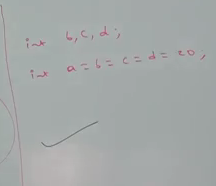 int b, c, d;
int a = b = c = d = 20,